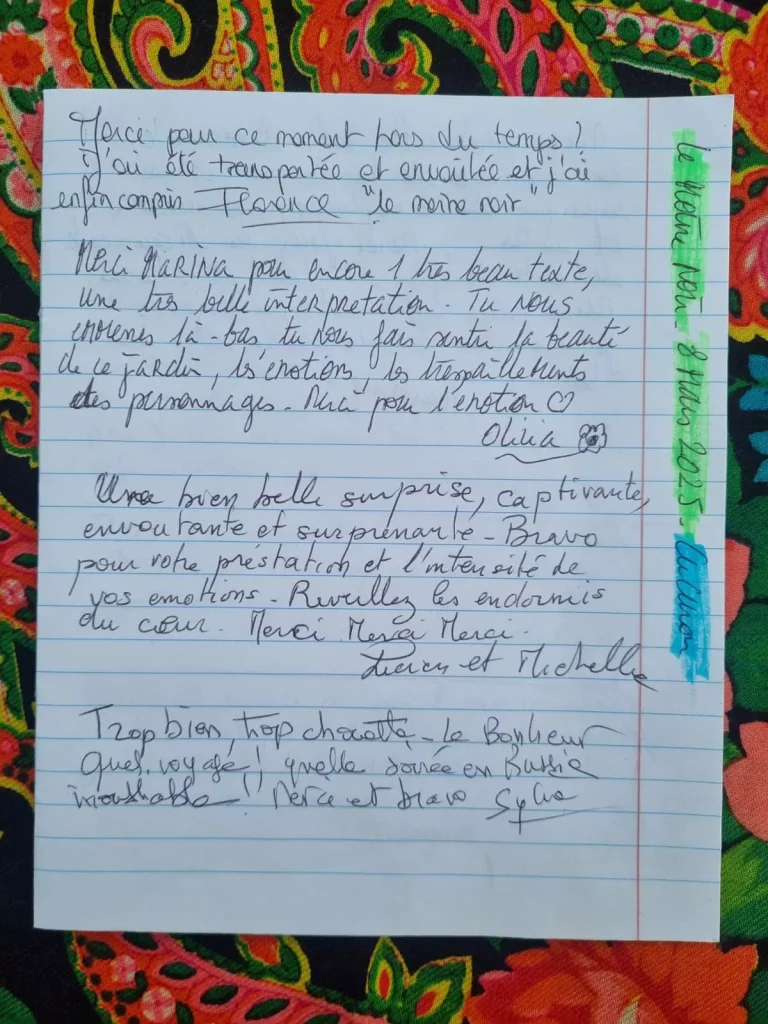 Merci pour ce moment hors du temps !
J'ai été transportée et envoûtée et j'ai
enfin compris Florence "le moine noir"
Merci MARINA pour encore 1 très beau texte,
une très belle interpretation. Tu nous
emmènes là-bas tu nous fais sentir la beauté
de ce jardin, les émotions, les tressaillements
des personnages. Merci pour l'émotion ♡
Olivia
Une bien belle surprise, captivante,
envoutante et surprenante - Bravo
pour votre préstation et l'intensité de
vos emotions - Reveillez les endormis
du cœur. Merci Merci Merci.
et Michelle
Trop bien, trop chouette - le Bonheur
Quel voyage ! quelle soirée en Russie
inoubliable !! Merci et bravo Sylvie
le Moine noir 8 mars 2025 -